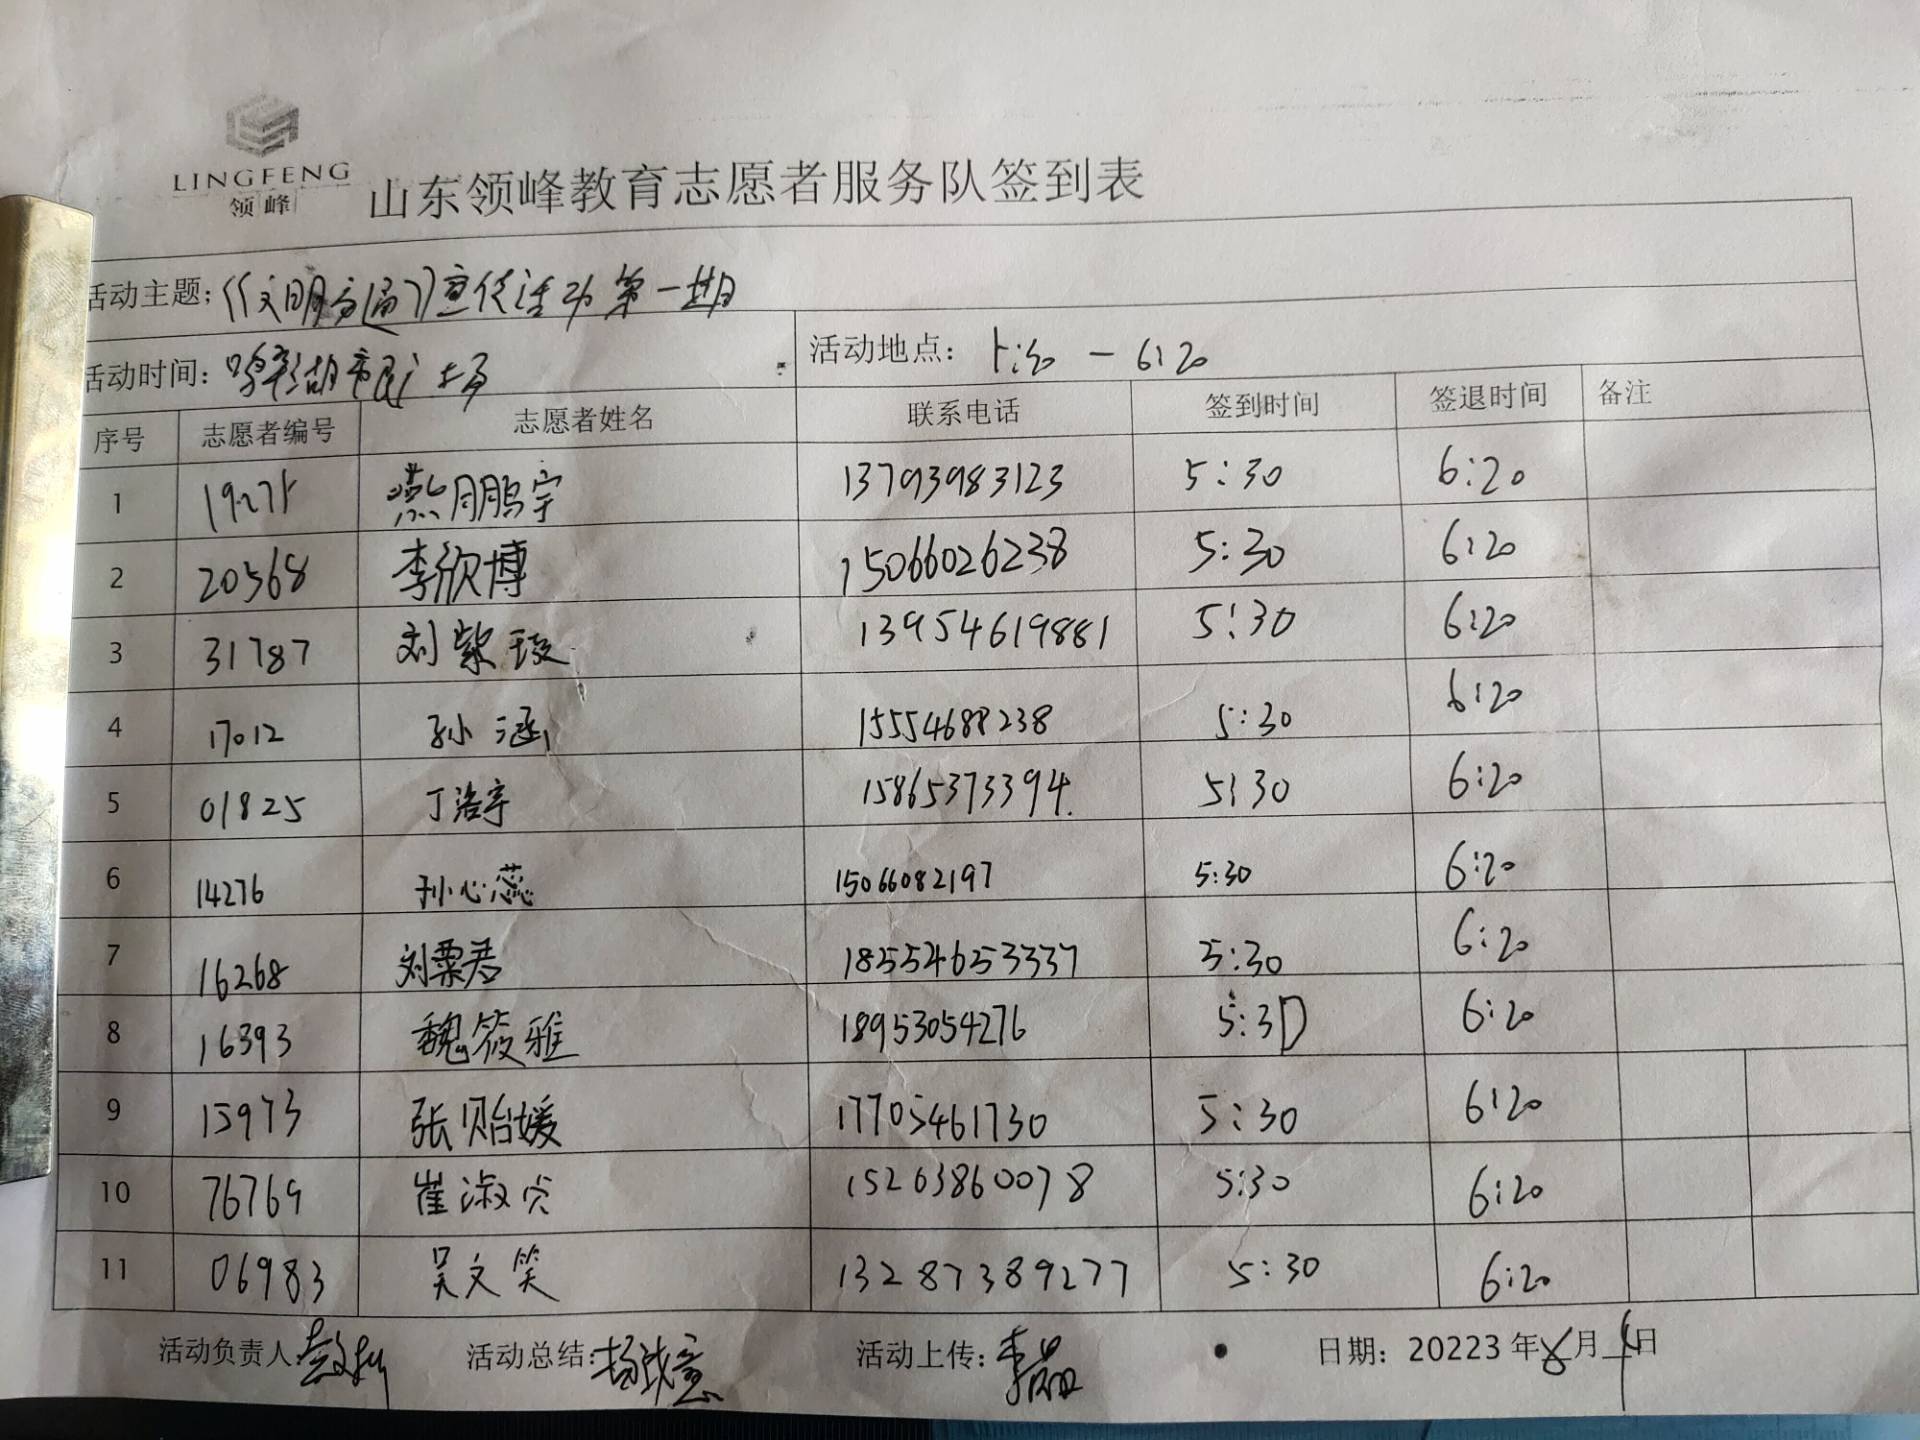 LINGFENG
领峰
山东领峰教育志愿者服务队签到表
活动主题：《文明交通》宣传活动第一期
活动时间： 湖市民广场 活动地点： 5:30 — 6:20
序号 志愿者编号 志愿者姓名 联系电话 签到时间 签退时间 备注
1 燕鹏宇 13793983123 5:30 6:20
2 20568 李欣博 15066026238 5:30 6:20
3 31787 刘紫 13954619881 5:30 6:20
4 17012 孙涵 15554688238 5:30 6:20
5 01825 丁洛宇 15865373394. 5:30 6:20
6 14276 孙心蕊 15066082197 5:30 6:20
7 16268 刘栗君 185554653337 5:30 6:20
8 16393 魏筱雅 18953054276 5:30 6:20
9 15973 张贻媛 17705461730 5:30 6:20
10 76769 崔淑贞 15263860078 5:30 6:20
11 06983 吴文笑 13287389277 5:30 6:20
活动负责人: 活动总结: 活动上传: 李晶 日期：20223年8月4日